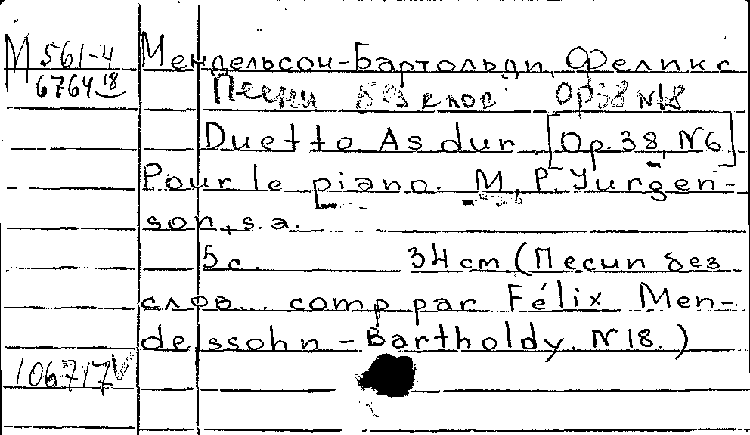 М 561-4
6764 18
Мендельсон-Бартольди, Феликс
Песни без слов Op 38 N18
Duetto As dur. [Op. 38, N6]
Pour le piano. M., P. Jurgen-
son, s.a.
5 с. 34 cm (Песни без
слов... comp par Félix Men-
delssohn-Bartholdy. N 18.)
106717